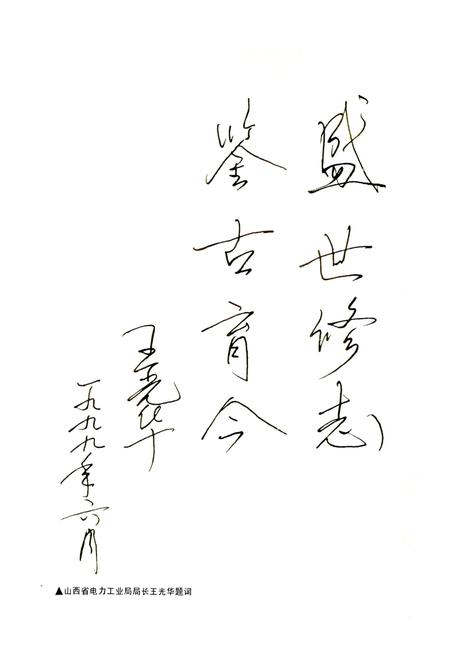 盛世修志
鉴古育今
王光华
一九九九年六月
▲山西省电力工业局局长王光华题词